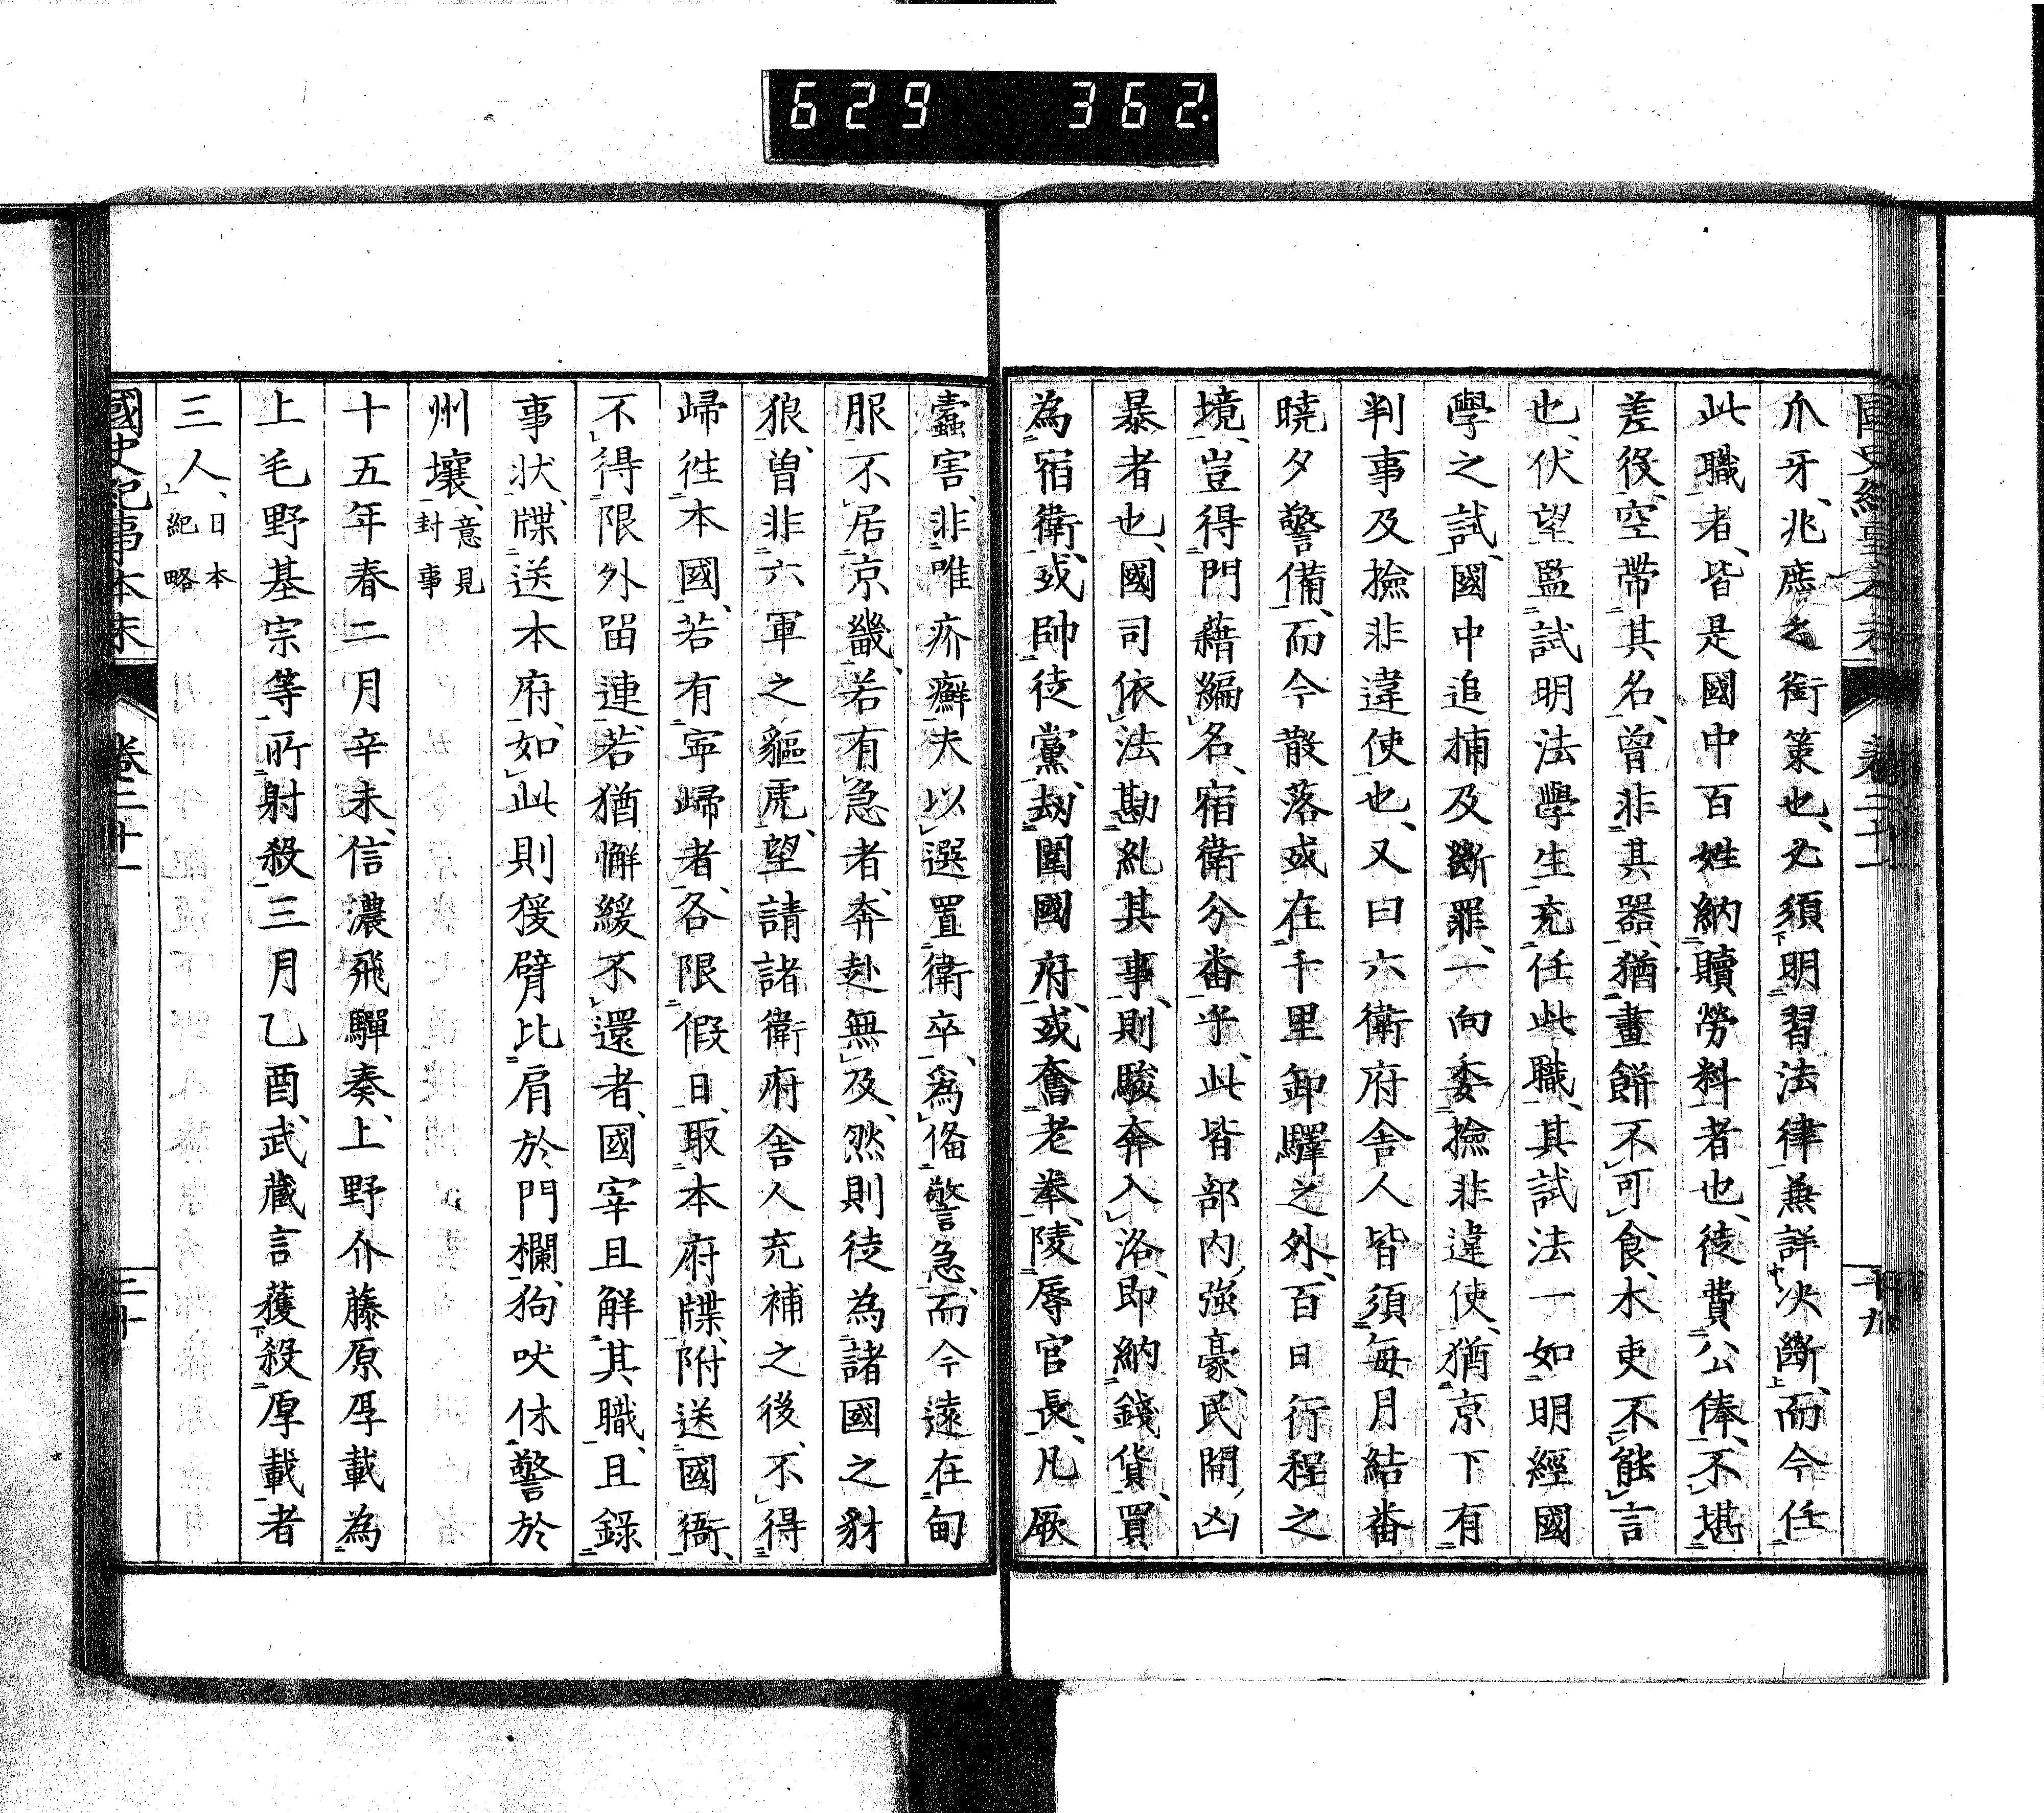 629 362.
爪牙、兆庶之銜策也、尤須明習法律、兼詳決斷、而今任
此職者、皆是國中百姓納贖勞料者也、徒費公俸、不堪
差役、空帶其名、曾非其器、猶畫餅不可食、木吏不能言
也、伏望監試明法學生、充任此職、其試法一如明經國
學之試、國中追捕及斷罪、一向委撿非違使、猶京下有
判事及撿非違使也、又曰六衛府舍人皆須每月結番
曉夕警備、而今散落或在千里卸驛之外、百日行程之
境、豈得門藉編名、宿衛分番乎、此皆部內強豪、民間凶
暴者也、國司依法勘糺其事、則駿奔入洛、即納錢貨、買
為宿衛、或帥徒黨、劫圍國府、或奮老拳、陵辱官長、凡厥
蠹害、非唯疥癬、夫以選置衛卒、爲備警急、而今遠在甸
服、不居京畿、若有急者、奔赴無及、然則徒為諸國之豺
狼、曾非六軍之貙虎、望請諸衛府舍人充補之後、不得
歸徃本國、若有寧歸者、各限假日、取本府牒、附送國衙、
不得限外留連、若猶懈緩不還者、國宰且解其職、且錄
事狀、牒送本府、如此則猨臂比肩於門欄、狗吠休警於
州壤、意見封事
十五年春二月辛未、信濃飛驒奏、上野介藤原厚載為
上毛野基宗等所射殺、三月乙酉、武藏言獲殺厚載者
三人、日本紀略
國史紀事本末 卷二十一 二十